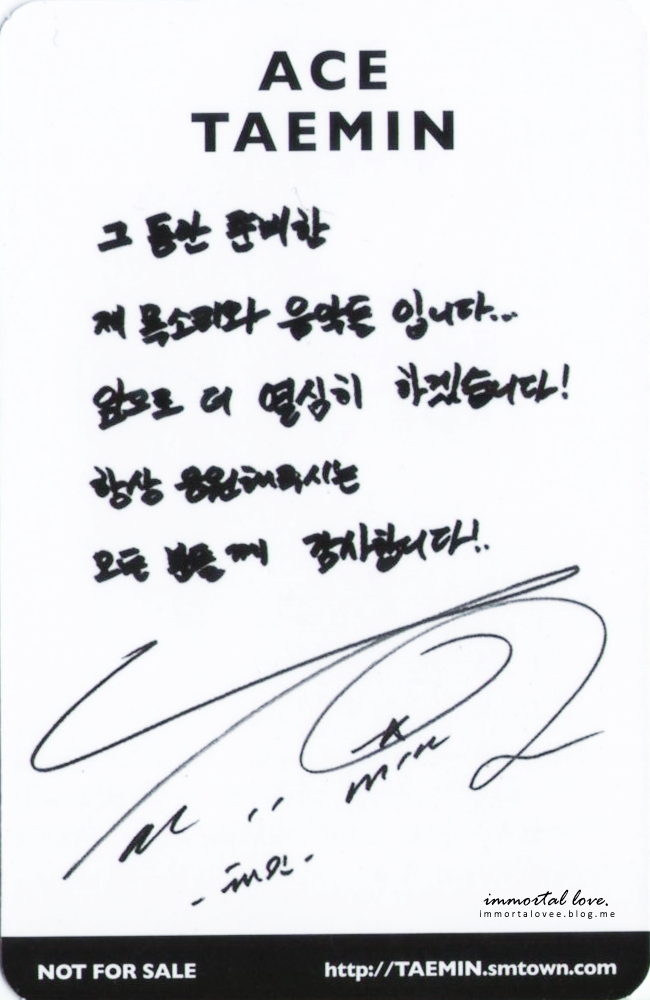 ACE
TAEMIN
그 동안 준비한
제 목소리와 음악들 입니다...
앞으로 더 열심히 하겠습니다!
항상 응원해주시는
모든 분들께 감사합니다!..
Tae Min
- 태민 -
immortal love.
immortalovee.blog.me
NOT FOR SALE
http://TAEMIN.smtown.com